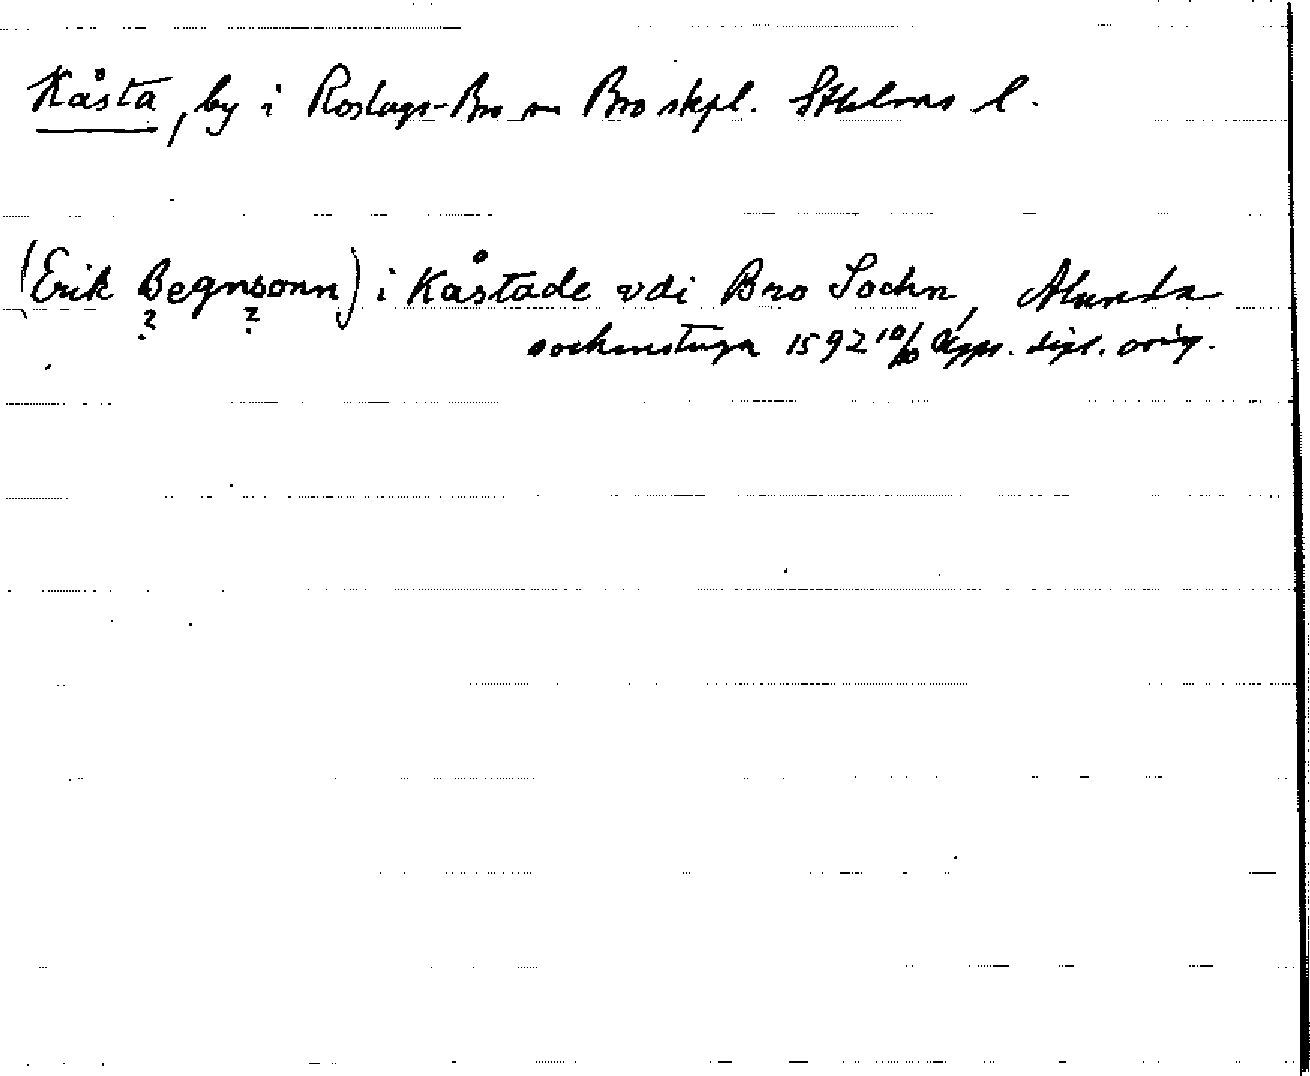 Kåsta, by i Roslags-Bro sn Bro skpl. Sthlms l.
(Erik Begnsonn) i Kåstade vdi Bro Sochn, Alunda
? ?
sockenstuga 1592 10/10 Upps. dipl. orig.